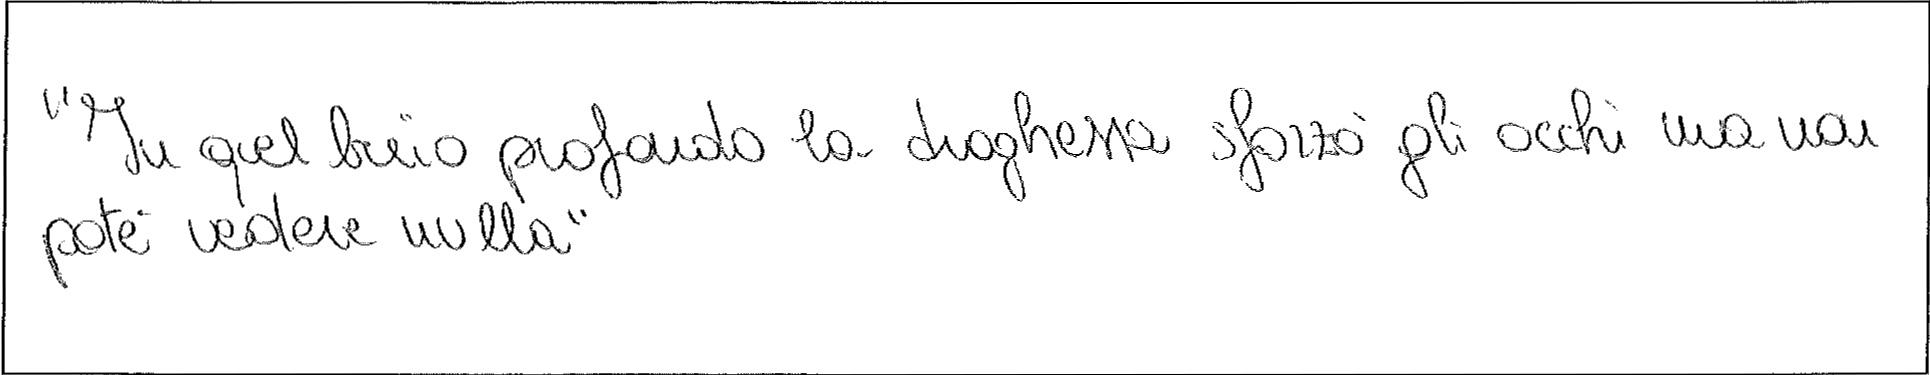 "In quel buio profondo la draghessa sforzò gli occhi ma non
poté vedere nulla"